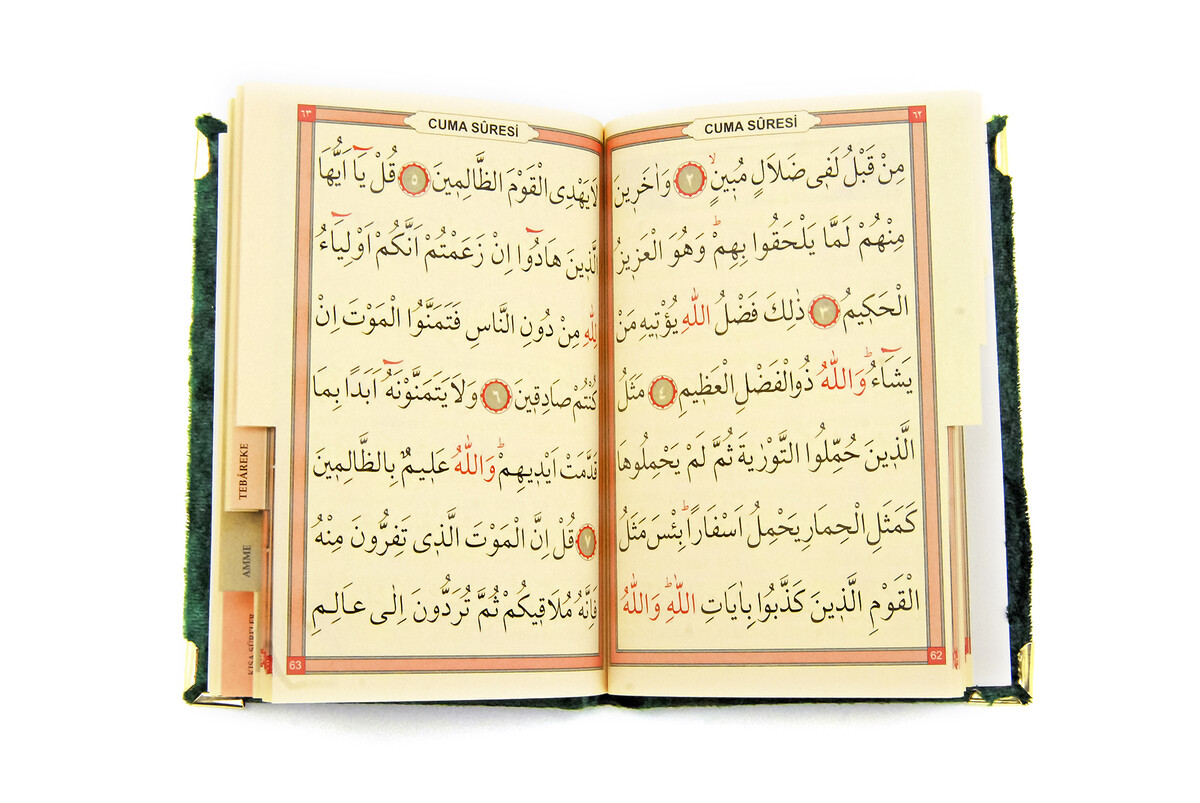 ٦٢
CUMA SÛRESİ
مِنْ قَبْلُ لَف۪ي ضَلَالٍ مُب۪ينٍۙ ﴿٢﴾ وَاٰخَر۪ينَ
مِنْهُمْ لَمَّا يَلْحَقُوا بِهِمْۜ وَهُوَ الْعَز۪يزُ
الْحَك۪يمُ ﴿٣﴾ ذٰلِكَ فَضْلُ اللّٰهِ يُؤْت۪يهِ مَنْ
يَشَٓاءُۜ وَاللّٰهُ ذُوالْفَضْلِ الْعَظ۪يمِ ﴿٤﴾ مَثَلُ
الَّذ۪ينَ حُمِّلُوا التَّوْرٰيةَ ثُمَّ لَمْ يَحْمِلُوهَا
كَمَثَلِ الْحِمَارِ يَحْمِلُ اَسْفَارًاۜ بِئْسَ مَثَلُ
الْقَوْمِ الَّذ۪ينَ كَذَّبُوا بِاٰيَاتِ اللّٰهِۜ وَاللّٰهُ
62
٦٣
CUMA SÛRESİ
لَا يَهْدِي الْقَوْمَ الظَّالِم۪ينَ ﴿٥﴾ قُلْ يَٓا اَيُّهَا
الَّذ۪ينَ هَادُٓوا اِنْ زَعَمْتُمْ اَنَّكُمْ اَوْلِيَٓاءُ
لِلّٰهِ مِنْ دُونِ النَّاسِ فَتَمَنَّوُا الْمَوْتَ اِنْ
كُنْتُمْ صَادِق۪ينَ ﴿٦﴾ وَلَا يَتَمَنَّوْنَهُٓ اَبَدًا بِمَا
قَدَّمَتْ اَيْد۪يهِمْۜ وَاللّٰهُ عَل۪يمٌ بِالظَّالِم۪ينَ
﴿٧﴾ قُلْ اِنَّ الْمَوْتَ الَّذ۪ي تَفِرُّونَ مِنْهُ
فَاِنَّهُ مُلَاق۪يكُمْ ثُمَّ تُرَدُّونَ اِلٰى عَالِمِ
63
TEBÂREKE
AMME
KISA SÛRELER